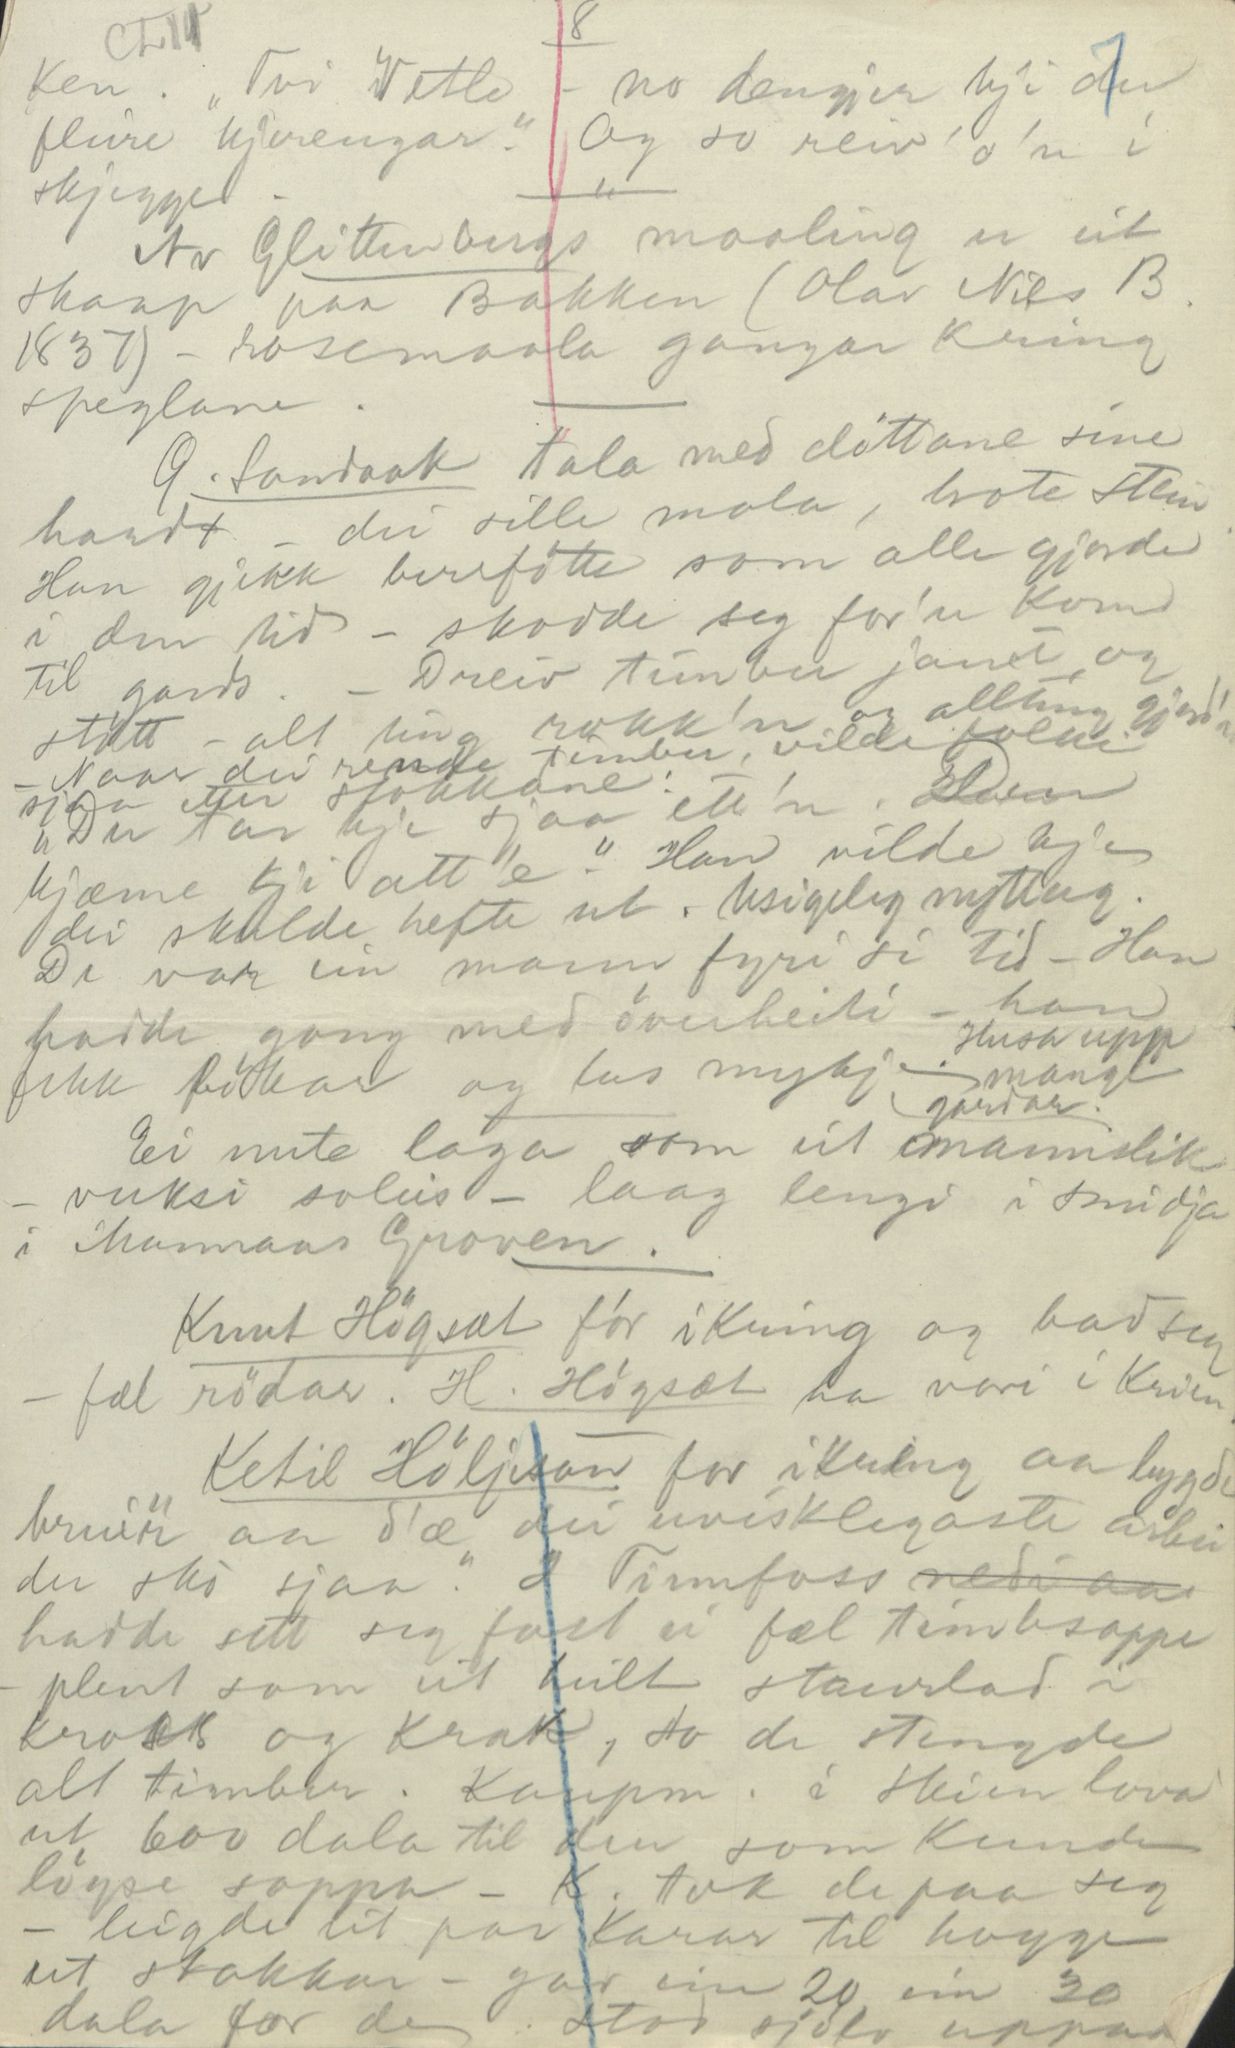 8
7
ken. "Tvi Vetle - no dengjer kji du
fleire kjerengar." Og so reiv 'o 'n i
skjegget -
Av Glittenbergs maaling er eit
skaap paa Bakken (Olav Nils B.
1837) - rosemaala gangar kring
speglane.
G. Sandaak tala med döttane sine
hardt - dei sille mala, brote stein
Han gjekk berefötte som alle gjorde
i den tid - skodde seg for'n kom
til gards. - Dreiv timber jamt og
stött - alt ting rokk'n og allting gjord'n
- Naar dei rende timber, vilde folki
sjaa etter stokkane:
"Du tar kje sjaa ett'n.
kjæme kji att 'e". Han vilde kje
dei skulde hefte ut. Usigeleg nyttug.
De var ein mann fyri si tid - Han
hadde gang med överheiti - han
fekk bökar og las mykje. Husa upp
mange
gardar.
Ei nute laga som eit mannslik
- vuksi soleis - laag lengi i smidja
i Manmaas Groven.
Knut Högsæt fór ikring og bad seg
- fæl rödar. H. Högsæt aa vori i Krien.
Ketil Höljeson for ikring aa bygde
bruir" aa d'æ dei uvisklegaste arbei
der skó sjaa." I Tinnfoss
hadde sett seg fast ei fæl timbsoppe
- plent som eit heilt staurlad i
krokk og krak, so de stengde
alt timber. Kaupm. i Skien lova
ut 600 dala til den som kunde
löyse soppa - K. tok de paa seg
- leigde eit par karar til hogge
ut stokkar - gav ein 20 ein 30
dala for de. Stod sjölv uppaa